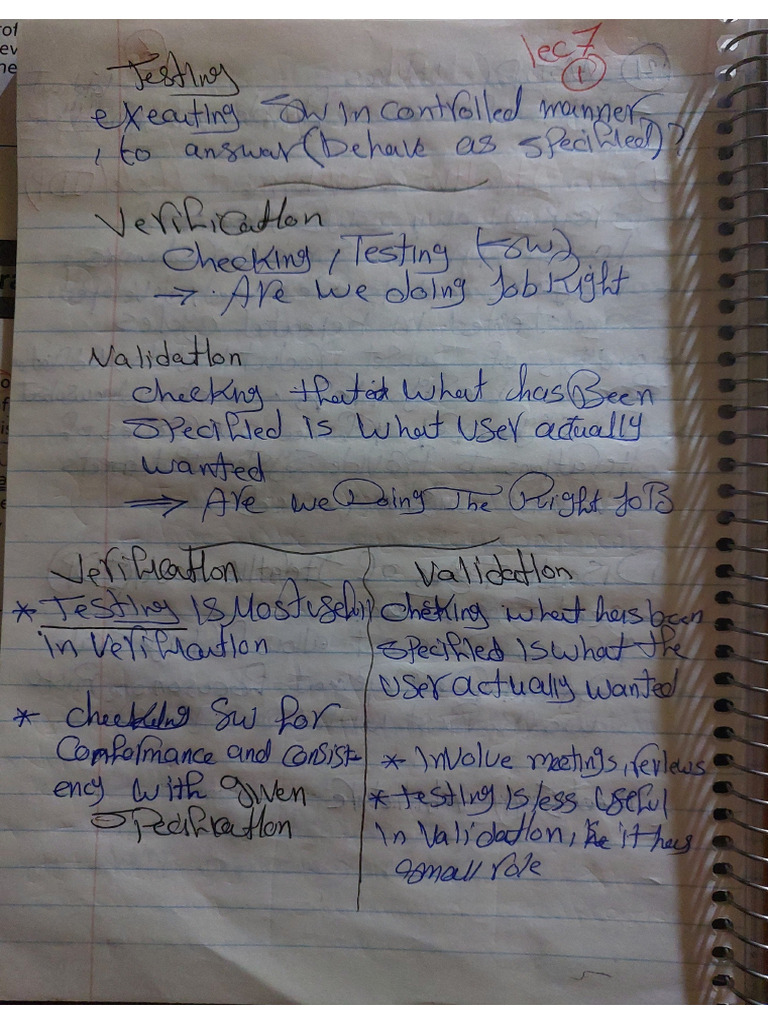 lec 7
1
Testing
executing SW in controlled manner
, to answar (behave as specified)?
Verification
Checking, Testing (SW)
→ Are we doing Job Right
Validation
checkng that what has Been
specified is what user actually
wanted
⇒ Are we Doing The Right JoB
Verification
* Testing is Most useful
in verification
* checking SW for
Conformance and consist-
ency with given
specification
Validation
cheking what has been
specified is what the
user actually wanted
* involve meetings, reviews
* testing is less useful
in validation, it has
small role